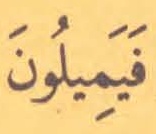 فَيَمِيلُونَ